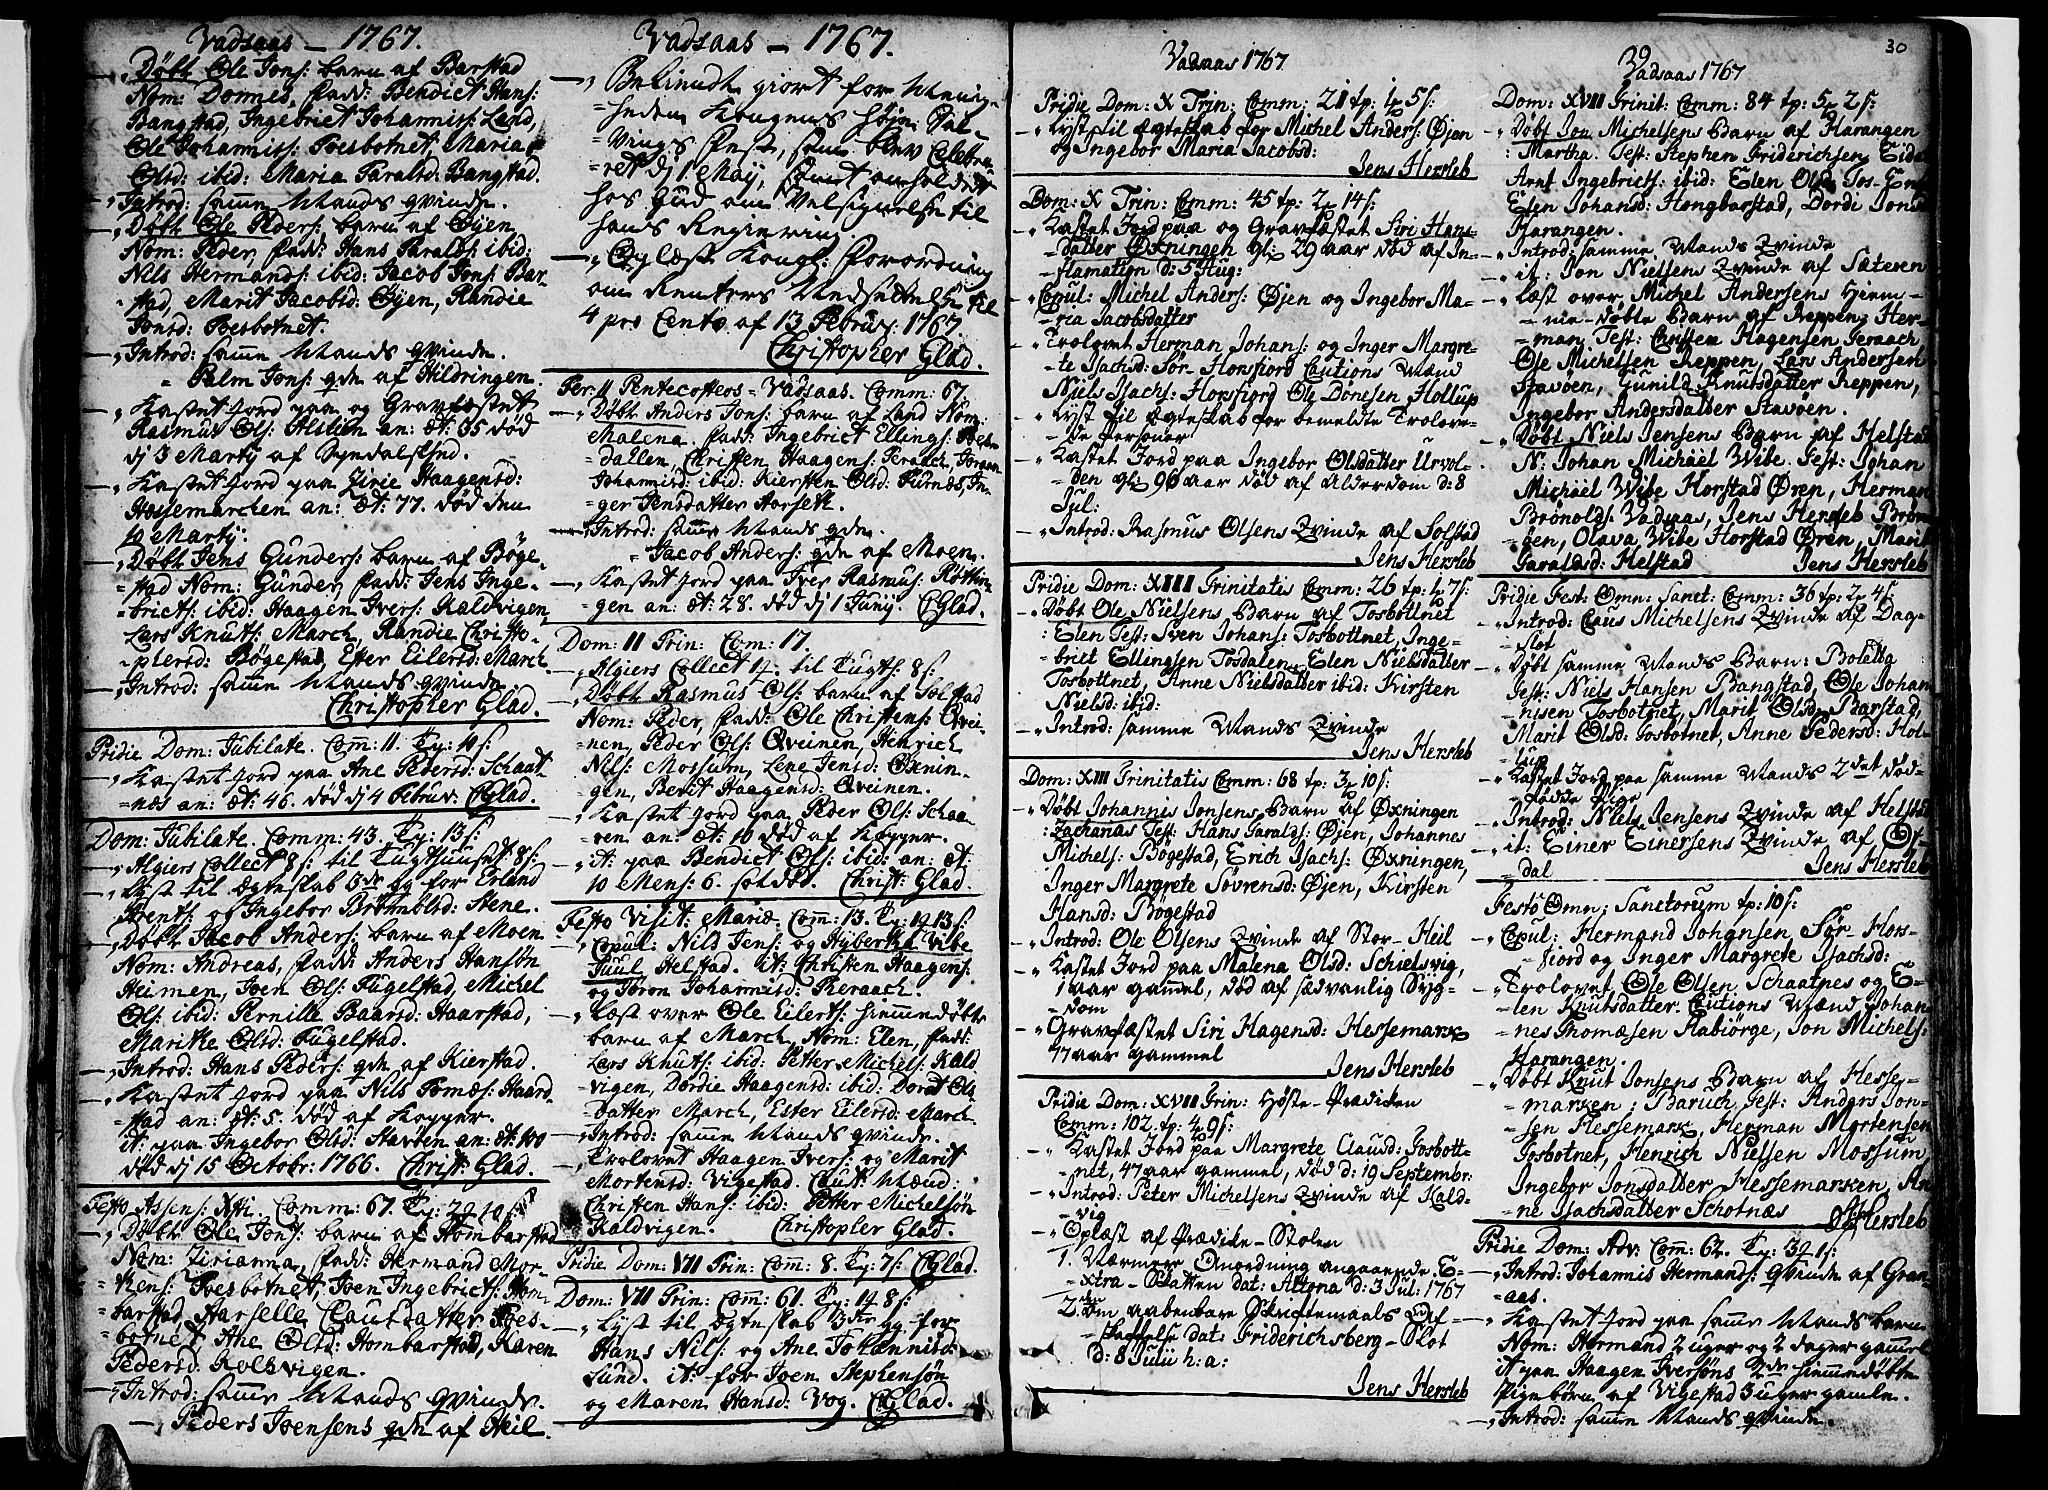 Vadsaas – 1767.
–„ Døbt Ole Jons: barn af Barstad
Nom: Donnes, fadd: Bendict Hans:
Bangstad, Ingebrict Johanniss: Land,
Ole Johanniss: Toesbotnet, Maria
Olsd: ibid: Maria Taralsd: Bangstad.
–„ Introd: samme Mands qvinde.
–„ Døbt Ole Peders: barn af Øyen
Nom: Peder, fadd: Hans Taralds: ibid:
Nils Hermands: ibid: Jacob Jons: Bar-
stad, Marit Jacobsd: Øjen, Randie
Jonsd: Toesbotnet.
–„ Introd: samme Mands qvinde.
= Palm Jons: qde af Hildringen.
–„ Kastet Jord paa og Gravfæstet
Rasmus Ols: an: æt: 35 død
dj 3 Martij af
–„ Kastet Jord paa Zirie Haagensd:
Hessemarchen an: æt: 77. død den
10 Martij.
–„ Døbt Jens Gunders: barn af Bøge-
stad Nom: Gunder, fadd: Jens Inge-
-bricts: ibid: Haagen Ivers: Kaldvigen,
Lars Knuts: March, Randie Christo-
-phersd: Bøgestad, Ester Eilersd: March
–„ Introd: samme Mands qvinde.
Christopher Glad.
Pridie Dom: Jubilate. Com: 11. Ty: 10 s:
–„ Kastet Jord paa Ane Pedersd: Schaat-
=næs an: æt: 46. død dj 4 Februv: CGlad.
Dom: Jubilate. Comm: 43. Ty: 13 s:
–„ Algiers Collect 8 s: til Tugthuuset 8 s:
–„ Lyst til Ægteskab 3de gg for Erland
Arents: og Ingebor Brømblsd: Stene.
–„ Døbt Jacob Anders: barn af Moen
Nom: Andreas, fadd: Anders Hansøn
Heimen, Joen Ols: Fugelstad, Michel
Ols: ibid: Pernille Baarsd: Haarstad,
Marike Olsd: Fugelstad.
–„ Introd: Hans Peders: qde af Kierstad.
–„ Kastet Jord paa Nils Tomæs: Haard-
stad an: æt: 5. død af Kopper.
it: paa Ingebor Olsd: Stavøen an: æt: 100
død dj 15 Octobr: 1766. Christ: Glad.
Festo Ascens: Xti. Comm: 67. Ty: 2 10 s
–„ Døbt Ole Jons: barn af Hombarstad
Nom: Zirianna, fadd: Hermand Mor-
tens: Toesbotnet, Joen Ingebricts: Hom-
barstad, Aarselle Clausdatter Toes-
botnet, Ane Olsd: Hombarstad, Karen
Pedersd: Kolsvigen.
–„ Introd: samme Mands qvinde.
–„ Peders Joensens qde af Heil.
Vadsaas – 1767.
–„ Bekiendt giort for Menig-
=heden Kongens Høje Sal-
=vings Fest, som blev Celebre-
=ret dj 1 Maij, samt anholdet
hos Gud om Velsignelse til
hans Regiering.
–„ Oplæst Kongl: Forordning
om Renters Nedsættelse til
4 pro Cento af 13 Februv: 1767.
Christopher Glad.
Fer: II Pentecosteos = Vadsaas. Comm: 67.
–„ Døbt Anders Jons: barn af Land Nom:
Malena. fadd: Ingebrict Ellings: Toes-
dallen, Christen Haagens: Teraach, Joran
Johannisd: ibid: Kiersten Olsd: Turnæs, In-
ger Jensdatter Horseth.
–„ Introd: samme Mands qde.
= Jacob Anders: qde af Moen.
–„ Kastet Jord paa Iver Rasmus: Røttin-
gen an: æt: 28. død dj 1 Junij. CGlad.
Dom: II Trin: Com: 17.
–„ Algiers Collect 4. til Tugth: 8 s:
–„ Døbt Rasmus Ols: barn af Solstad
Nom: Peder, fadd: Ole Christens: Qvei-
=nen, Peder Ols: Qveinen, Henrich
Nils: Mossum, Lene Jensd: Øxnin-
gen, Berit Haagensd: Qveinen.
–„ Kastet Jord paa Peder Ols: Schaa-
ren an: æt: 10 død af Kopper.
–„ it: paa Bendict Ols: ibid: an: æt:
10 Mens: 6. sotdød. Christ: Glad.
Festo Visit: Mariæ. Com: 13. Ty: 1 13 s:
–„ Copul: Nils Jens: og Hyberta Vibe
Juul Helstad. it: Christen Haagens:
og Joron Johannisd: Teraach.
–„ Læst over Ole Eilerts: hiemmedøbte
barn af March, Nom: Elen, fadd:
Lars Knuts: ibid: Petter Michels: Kald
vigen, Dordie Haagensd: ibid: Dorat Ols-
datter March, Ester Eilersd: March.
–„ Introd: samme Mands qvinde.
–„ Trolovet Haagen Ivers: og Marit
Mortensd: Vigestad. Caut: Mænd:
Christen Hans: ibid: Petter Michelsøn
Kaldvigen. Christopher Glad.
Pridie Dom: VII Trin: Com: 8. Ty: 7 s: CGlad.
Dom: VII Trin: Com: 61. Ty: 1 8 s:
–„ Lyst til Ægteskab 3die gg for
Hans Nils: og Ane Johannisd:
Lund. it: for Joen Stephensøn
og Maren Hansd: Vog. CGlad.
Vadsaas 1767.
Pridie Dom: X Trin: Comm: 21 tp: 1 5 s:
–„ Lyst til Ægteskab for Michel Anders: Øjen
og Ingebor Maria Jacobsd:
Jens Hersleb
Dom: X Trin: Comm: 45 tp: 2 14 s:
–„ Kastet Jord paa og Gravfæstet Siri Hans-
=datter Øxningen gl: 29 aar død af In-
-flamation d: 5 Aug:
–„ Copul: Michel Anders: Øjen og Ingebor Ma-
-ria Jacobsdatter
–„ Trolovet Herman Johans: og Inger Margre-
-te Isachsd: Sør-Horsfiord Cautions Mænd
Niels Isachs: Horsfiord Ole Dønesen Hollup
–„ Lyst til Ægteskab for bemeldte Trolove-
-de Personer
–„ Kastet Jord paa Ingebor Olsdatter Urvol-
-den gl: 96 aar død af Alderdom d: 8
Jul:
–„ Introd: Rasmus Olsens Qvinde af Solstad
Jens Hersleb
Pridie Dom: XIII Trinitatis Comm: 26 tp: 1 7 s:
–„ Døbt Ole Nielsens Barn af Tosbottnet
: Elen Test: Sven Johans: Tosbottnet, Inge-
-brict Ellingsen Tosdalen, Elen Nielsdatter
Tosbottnet, Anne Nielsdatter ibid: Kirsten
Nielsd: ibid:
–„ Introd: samme Mands Qvinde
Jens Hersleb
Dom: XIII Trinitatis Comm: 68 tp: 3 10 s:
–„ Døbt Johannis Jonsens Barn af Øxningen
: Zacharias Test: Hans Taralds: Øjen, Johannes
Michels: Bøgestad, Erich Isachs: Øxningen,
Inger Margrete Søvrensd: Øjen, Kirsten
Hansd: Bøgestad
–„ Introd: Ole Olsens Qvinde af Stor-Heil
–„ Kastet Jord paa Malena Olsd: Schielsvig,
1 aar gammel, død af sædvanlig Syg-
-dom
–„ Gravfæstet Siri Hagensd: Hessemarx
77 aar gammel
Jens Hersleb
Pridie Dom: XVII Trin: Høste-Prædiken
Comm: 102. tp: 4 9 s:
–„ Kastet Jord paa Margrete Clausd: Tosbott-
-net, 47 aar gammel, død d: 19 Septembr:
–„ Introd: Peter Michelsens Qvinde af Kald-
-vig
–„ Oplæst af Prædike-Stolen
1. Nærmere Anordning angaaende E-
-xtra-Skatten dat: Altona d: 3 Jul: 1767
2. Om aabenbare Skriftemaals Af-
-skaffelse dat: Friderichsberg-Slot
d: 8 Junii h: a:
Jens Hersleb
30
39
Vadsaas 1767
Dom: XVII Trinit: Comm: 84 tp: 5 2 s:
–„ Døbt Jon Michelsens Barn af Harangen
: Martha. Test: Stephen Friderichsen Eid
Arnt Ingebricts: ibid: Elen Olsd:
Elen Johansd: Hongbarstad, Dordi Jons
Harangen.
–„ Introd: samme Mands Qvinde
–„ it: Jon Nielsens Qvinde af Sæteren
–„ Læst over Michel Andersens Hiem-
-me-døbte Barn af Reppen; Her-
-man Test: Christen Hagensen Teraach,
Ole Michelsen Reppen, Lars Andersen
Stavøen, Gunild Knutsdatter Reppen,
Ingebor Andersdatter Stavøen.
–„ Døbt Niels Jensens Barn af Helstad
N: Johan Michael Wibe. Test: Johan
Michael Wibe Horstad Øren, Herman
Brønolds: Vadsaas, Jens Hersleb Brøn-
-gen, Olava Wibe Horstad Øren, Marit
Taraldsd: Helstad Jens Hersleb
Pridie Fest: Omn: Sanct: Comm: 36 tp: 2 4 s:
–„ Introd: Claus Michelsens Qvinde af Dag-
-slot
–„ Døbt samme Mands Barn: Boletta
Test: Niels Hansen Bangstad, Ole Johan-
-nisen Tosbotnet, Marit Olsd: Barstad,
Marit Olsd: Tosbotnet, Anne Pedersd: Hol-
-lup
–„ Kastet Jord paa samme Mands 2det død-
-fødde Pige
–„ Introd: Niels Jensens Qvinde af Helstad
–„ it: Einer Einersens Qvinde af
-dal Jens Hersleb
Festo Omn: Sanctorum tp: 10 s:
–„ Copul: Hermand Johansen Sør-Hors-
-fiord og Inger Margrete Isachsd:
–„ Trolovet Ole Olsen Schaatnes og E-
-len Knutsdatter. Cautions Mænd Johan-
nes Thomæsen Aabiørge, Jon Michels:
Harangen.
–„ Døbt Knut Jonsens Barn af Hesse-
-marxen; Baruch, Test: Anders Jon-
-sen Hessemarx, Herman Mortensen
Tosbotnet, Henrich Nielsen Mossum,
Ingebor Jonsdatter Hessemarxen, An-
-ne Isachsdatter Schotnæs JHersleb
Pridie Dom: Adv: Com: 62. Ty: 3 1 s:
–„ Introd: Johannis Hermands: Qvinde af Gran-
aas.
–„ Kastet Jord paa samme Mands barn
Nom: Hermand 2 uger og 2 dager gammel
it paa Haagen Iversøns 2de hiemmedøbte
Pigebørn af Vigestad 3 uger gamle.
–„ Introd: samme Mands qvinde.